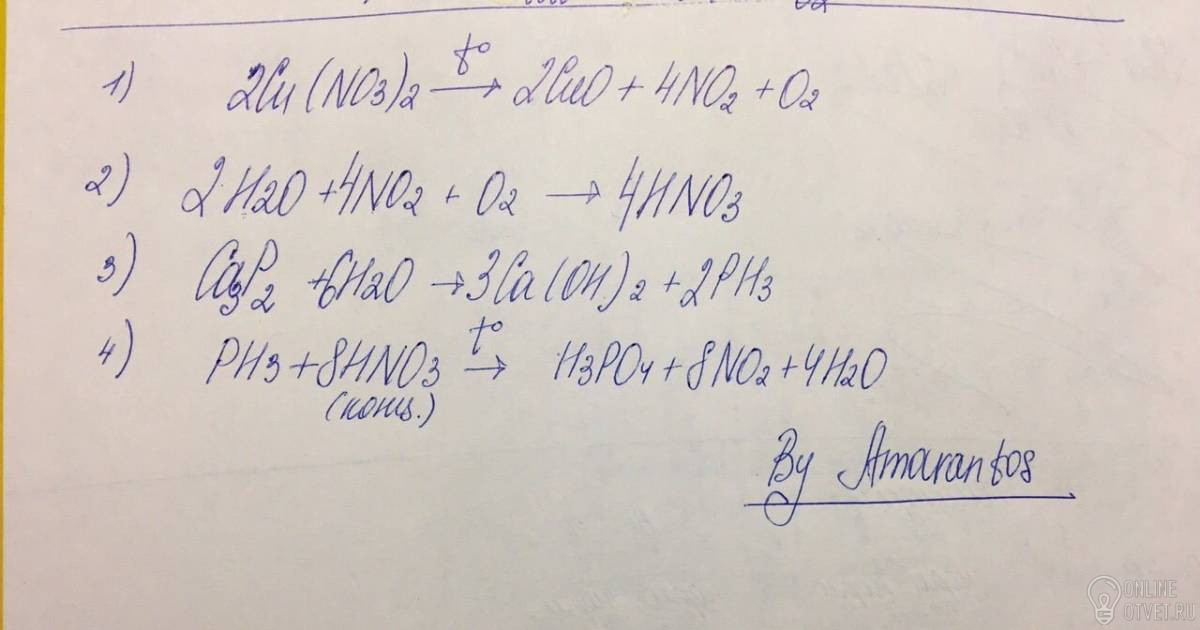 1) 2Cu(NO3)2 t° → 2CuO + 4NO2 + O2
2) 2H2O + 4NO2 + O2 → 4HNO3
3) Ca3P2 + 6H2O → 3Ca(OH)2 + 2PH3
4) PH3 + 8HNO3 t° → H3PO4 + 8NO2 + 4H2O
(конц.)
By Amarantos
ONLINE
OTVET.RU